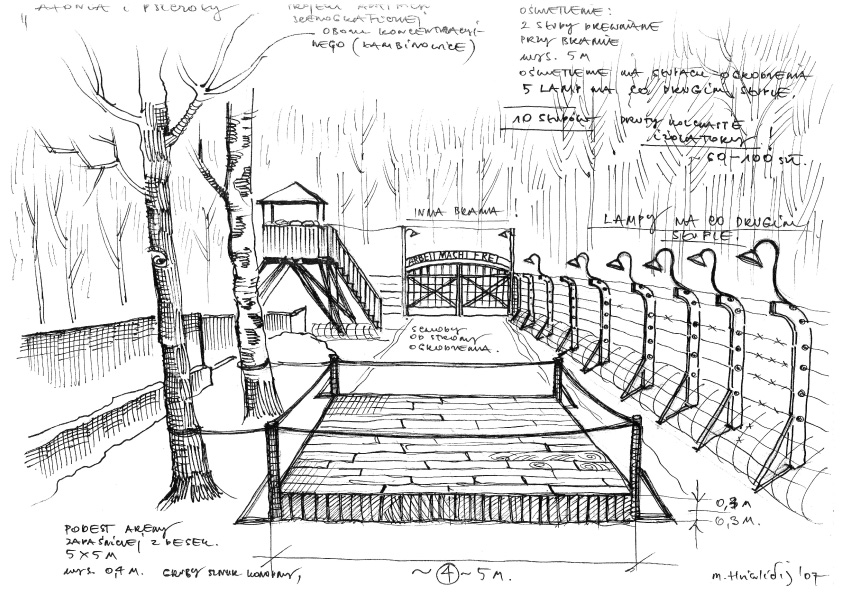 SCENOGRAFICZNEJ
OBOZU KONCENTRACYJ-
NEGO (ŁAMBINOWICE)
OŚWIETLENIE:
2 SŁUPY DREWNIANE
PRZY BRAMIE
WYS. 5 M
OŚWIETLENIE NA SŁUPACH OGRODZENIA
5 LAMP NA CO DRUGIM SŁUPIE.
10 SŁUPÓW
DRUTY KOLCZASTE
IZOLATORY!
~60-100 szt.
LAMPY NA CO DRUGIM
SŁUPIE.
INNA BRAMA!
ARBEIT MACHT FREI
SCHODY
OD STRONY
OGRODZENIA.
0,3 M.
PODEST ARENY
ZAPAŚNICZEJ Z DESEK.
5 X 5 M
WYS. 0,4 M. GRUBY SZNUR KONOPNY,
~ 4 ~ 5 M.
'07